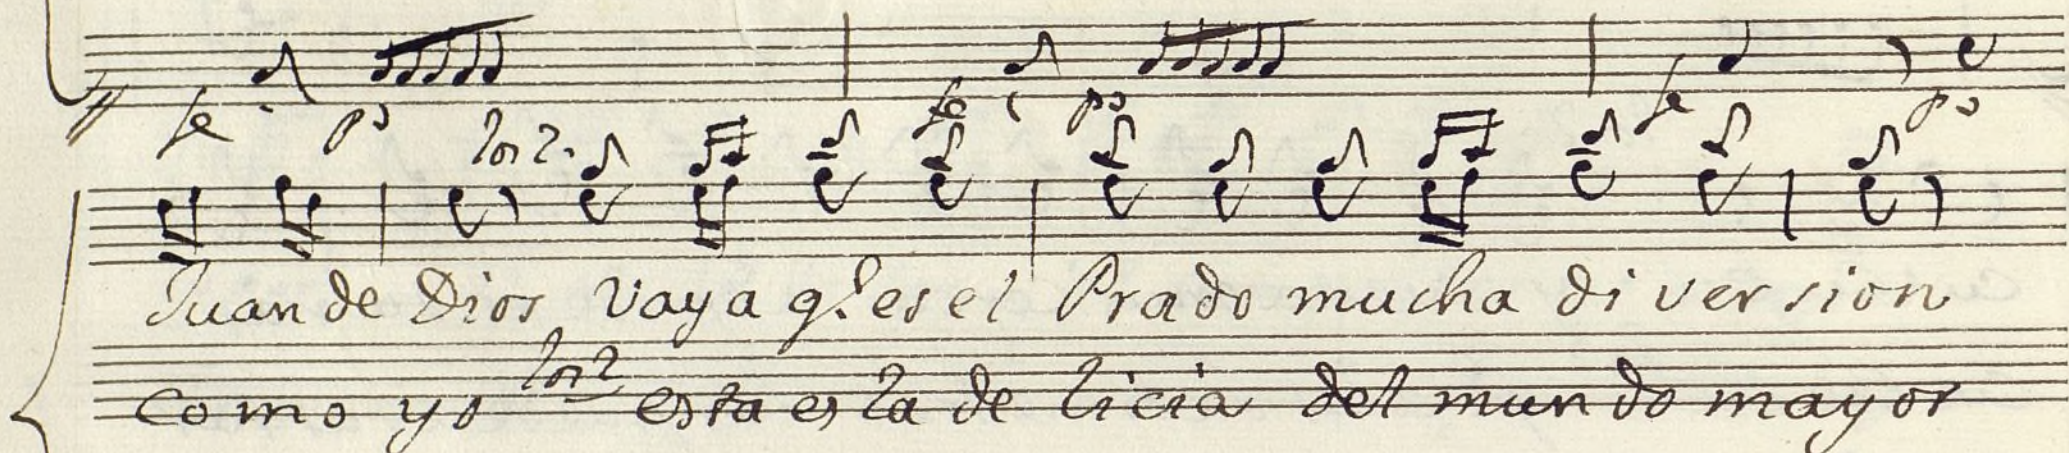 fe po fe po fe po
los 2.
Juan de Dios Vaya q.e es el Prado mucha di ver sion
los 2
como yo esta es la de licia del mundo mayor